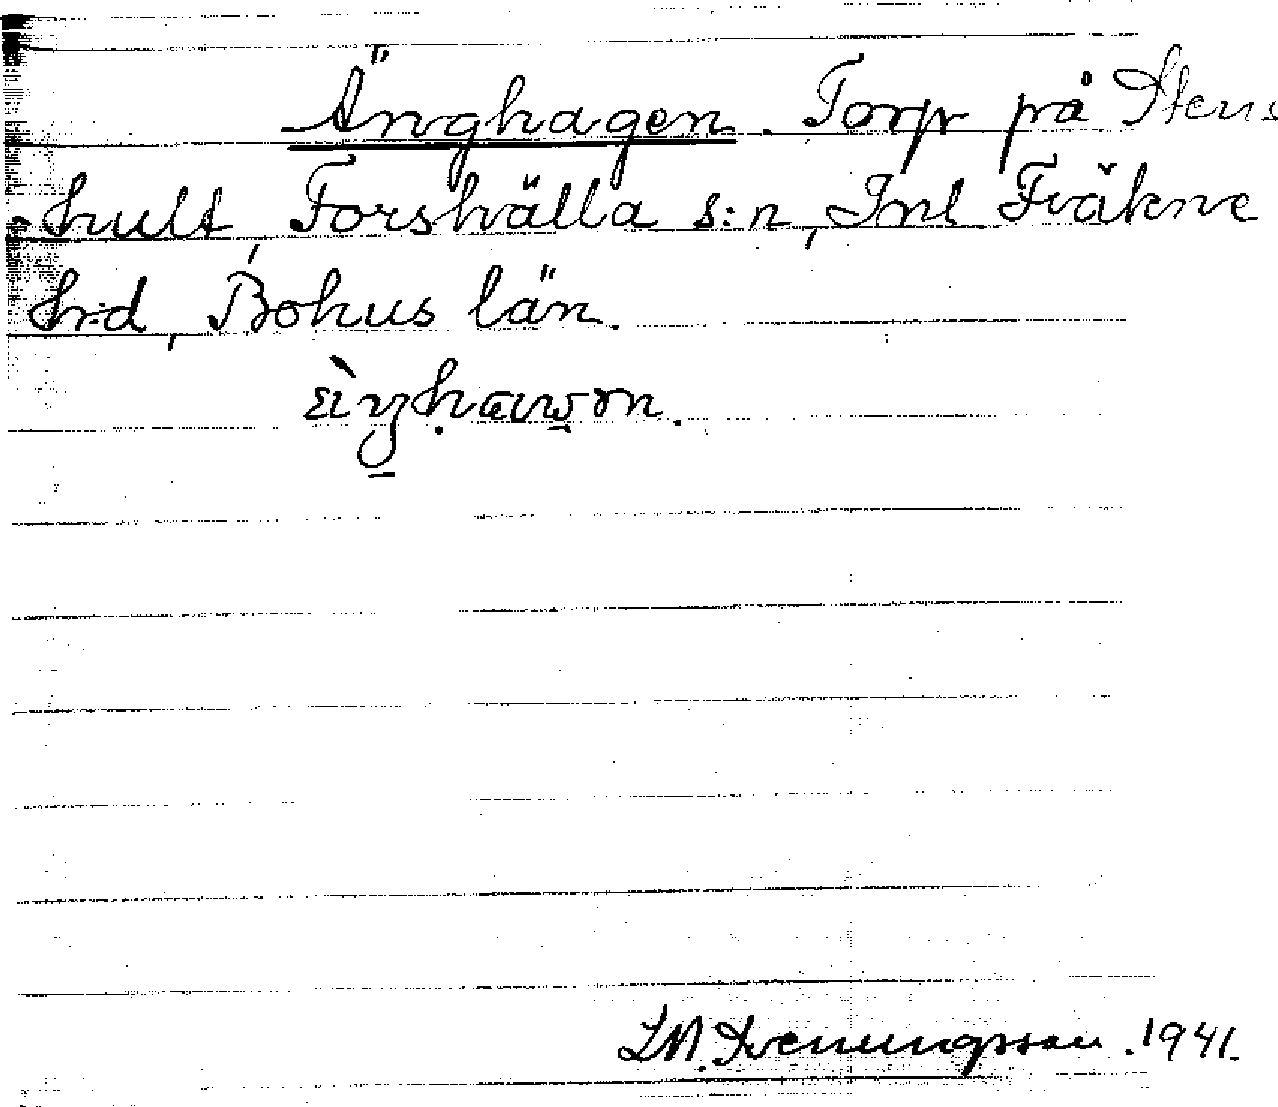 Änghagen. Torp på Stens
hult, Forshälla s:n, Inl Fräkne
hrd, Bohus län.
1941.